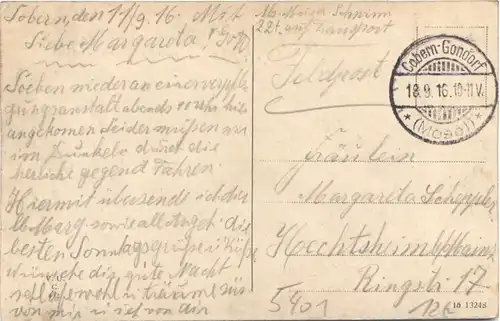 Cobern, den 17/9. 16.
Liebe Margareta!
Soeben wieder an einer verpfle-
gungsanstalt abends 10 uhr hir
angekomen Leider müßen wir
im Dunkeln durch die
herliche gegend Fahren.
Hiermit übersende ich dir
lb Marg sowie all die
besten Sonntagsgrüße u Küße
wünsche dir gute Nacht
schlafe wohl u träume süs
von mir u ich von dir
22t.
Feldpost
Cobern-Gondorf
18.9.16.10-11V.
* (Mosel) *
Fräulein
Margareta
Hechtsheim b/Mainz
Ringstr 17
5401
16 13248